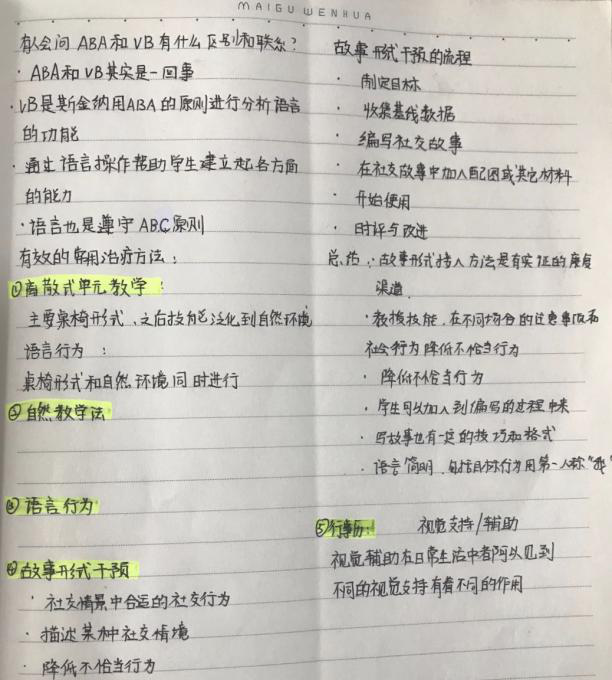 MAIGU WENHUA
有人会问 ABA和VB有什么区别和联系?
· ABA和VB其实是一回事
· VB是斯金纳用ABA的原则进行分析语言
的功能
· 通过语言操作帮助学生建立起各方面
的能力
· 语言也是遵守ABC原则
有效的常用治疗方法:
①离散式单元教学:
主要桌椅形式、之后技能泛化到自然环境
语言行为:
桌椅形式和自然环境同时进行
②自然教学法
③语言行为
④故事形式干预
· 社交情景中合适的社交行为
· 描述某种社交情境
· 降低不恰当行为
故事形式干预的流程
· 制定目标
· 收集基线数据
· 编写社交故事
· 在社交故事中加入配图或其它材料
· 开始使用
· 时评与改进
总结:故事形式接入方法是有实证的康复
渠道
· 教授技能,在不同场合的过
社会行为降低不恰当行为
· 降低不恰当行为
· 学生可以加入到编写的过程中来
· 写故事也有一定的技巧和格式
· 语言简明,包括目标行为用第一人称"我"
⑤行事历: 视觉支持/辅助
视觉辅助在日常生活中都可以见到
不同的视觉支持有着不同的作用